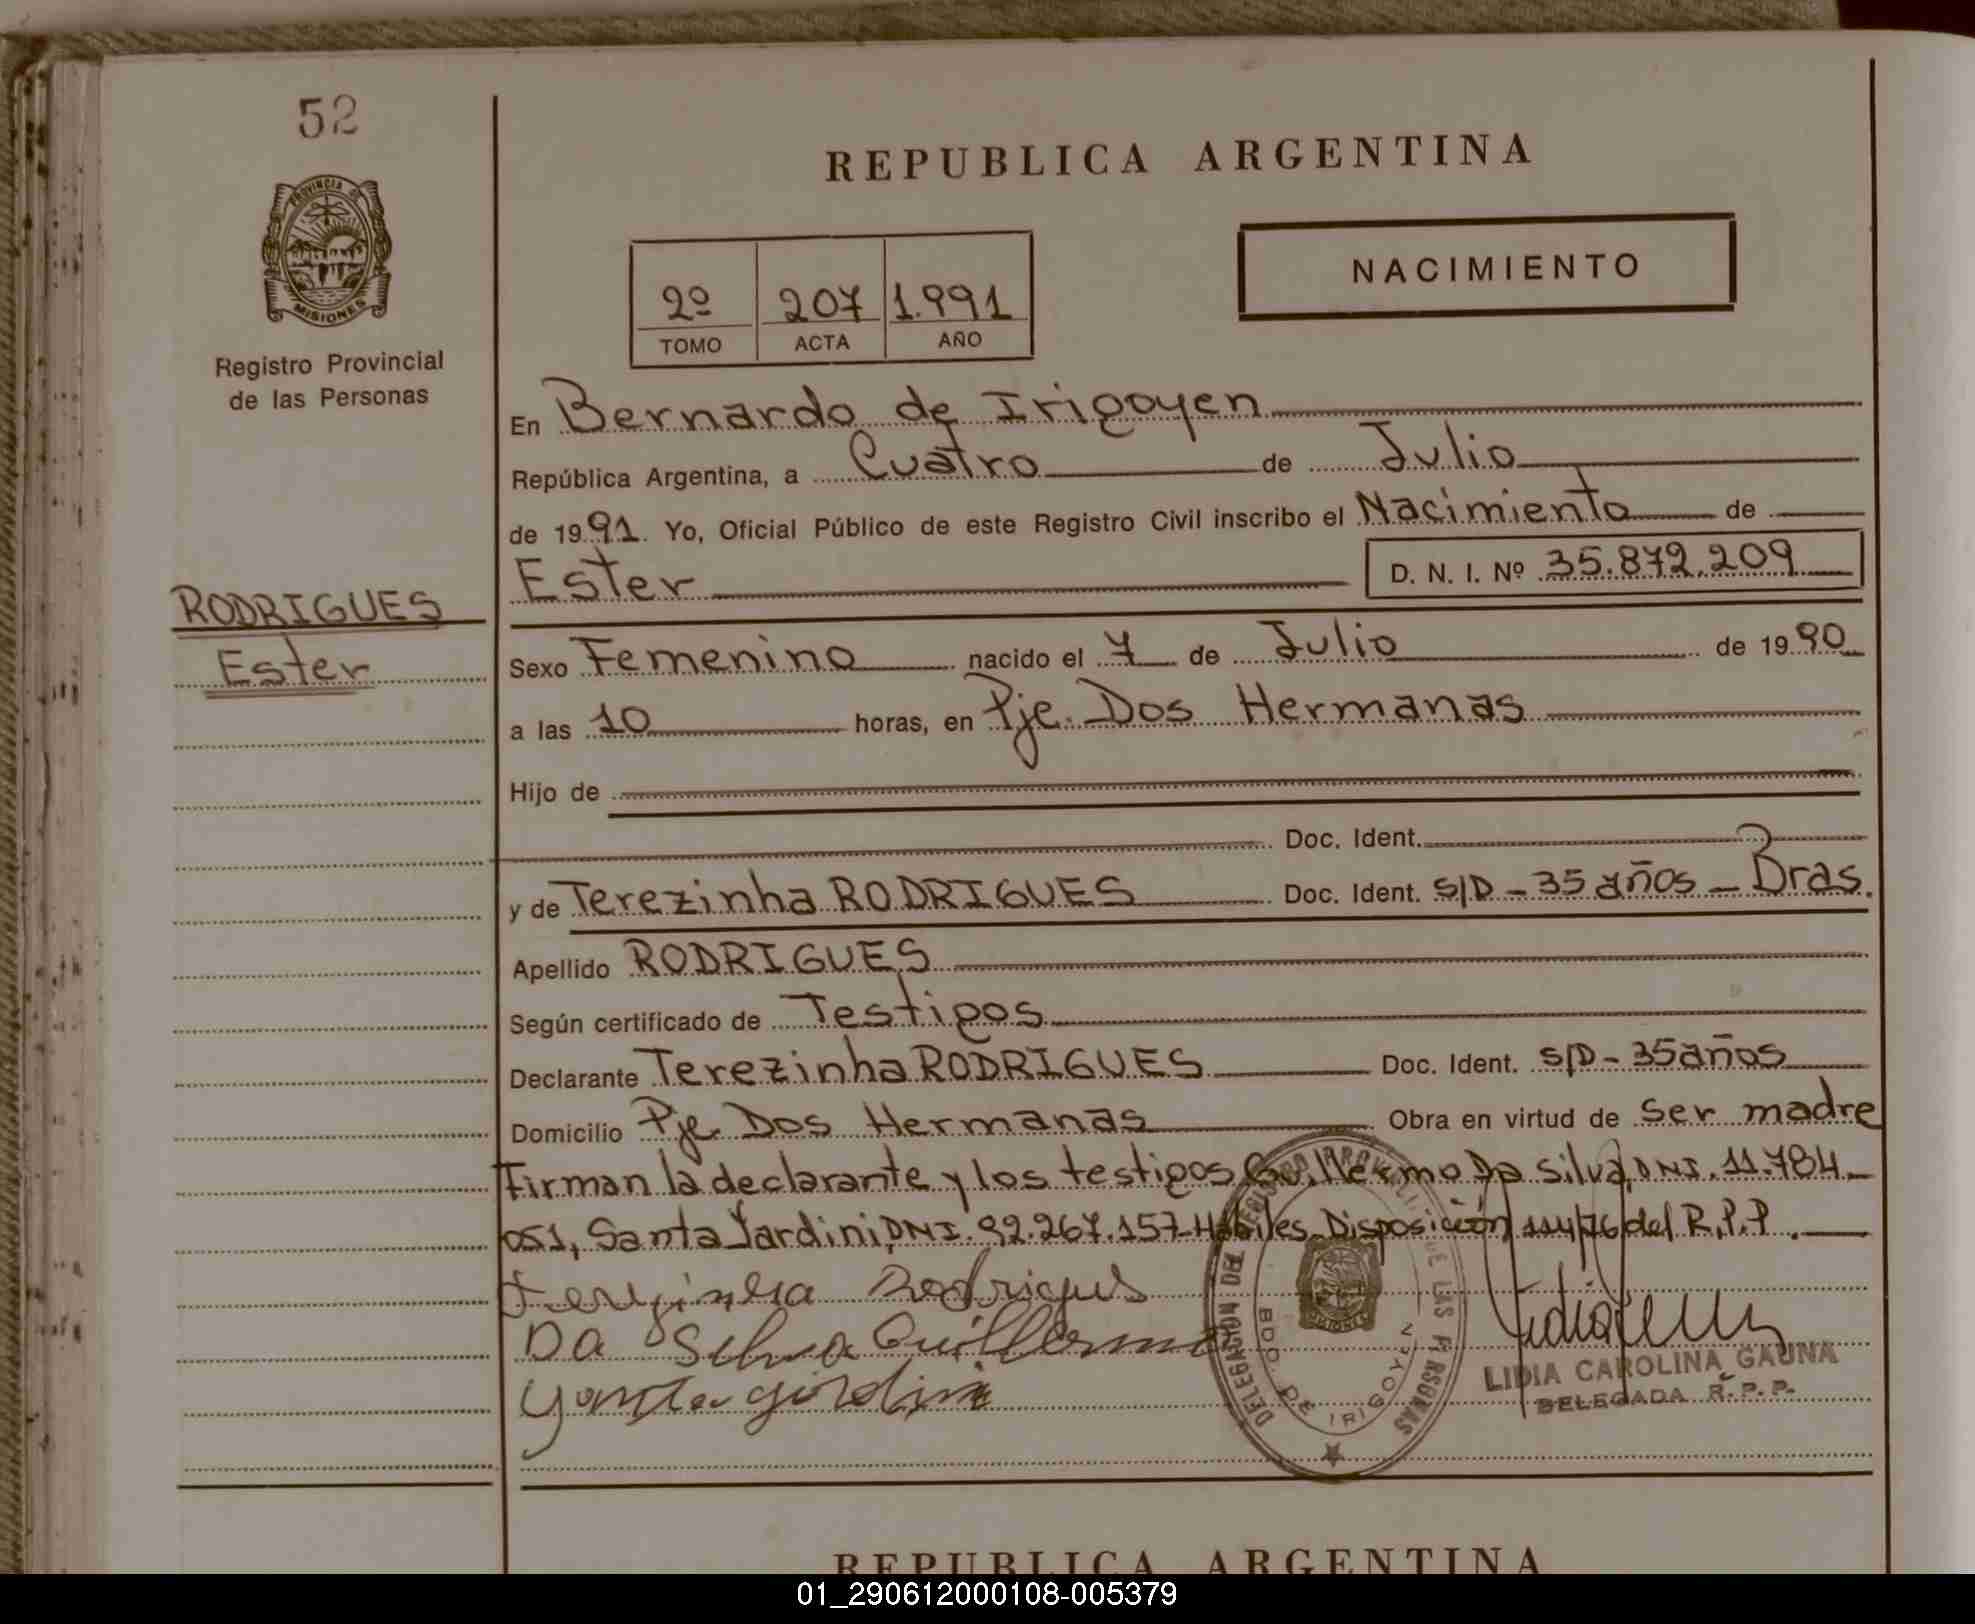 52
REPUBLICA ARGENTINA
PROVINCIA DE
MISIONES
Registro Provincial
de las Personas
2º 207 1.991
TOMO ACTA AÑO
NACIMIENTO
En Bernardo de Irigoyen
República Argentina, a Cuatro de Julio
de 1991. Yo, Oficial Público de este Registro Civil inscribo el Nacimiento de
Ester D. N. I. Nº 35.872.209
RODRIGUES
Ester
Sexo Femenino nacido el 7 de Julio de 1990
a las 10 horas, en Pje. Dos Hermanas
Hijo de
Doc. Ident.
y de Terezinha RODRIGUES Doc. Ident. S/D - 35 años - Bras.
Apellido RODRIGUES
Según certificado de Testigos
Declarante Terezinha RODRIGUES Doc. Ident. S/D - 35 años
Domicilio Pje. Dos Hermanas Obra en virtud de ser madre
Firman la declarante y los testigos Guillermo Da Silva, DNI. 11.784-
051, Santa Jardini, DNI. 92.267.157 Habiles Disposición 114/76 del R.P.P.
Terezinha Rodrigues
Da Silva Guillermo
DELEGACION DEL REGISTRO PROVINCIAL DE LAS PERSONAS
BDO. DE IRIGOYEN
LIDIA CAROLINA GAUNA
DELEGADA R.P.P.
REPUBLICA ARGENTINA
01_290612000108-005379